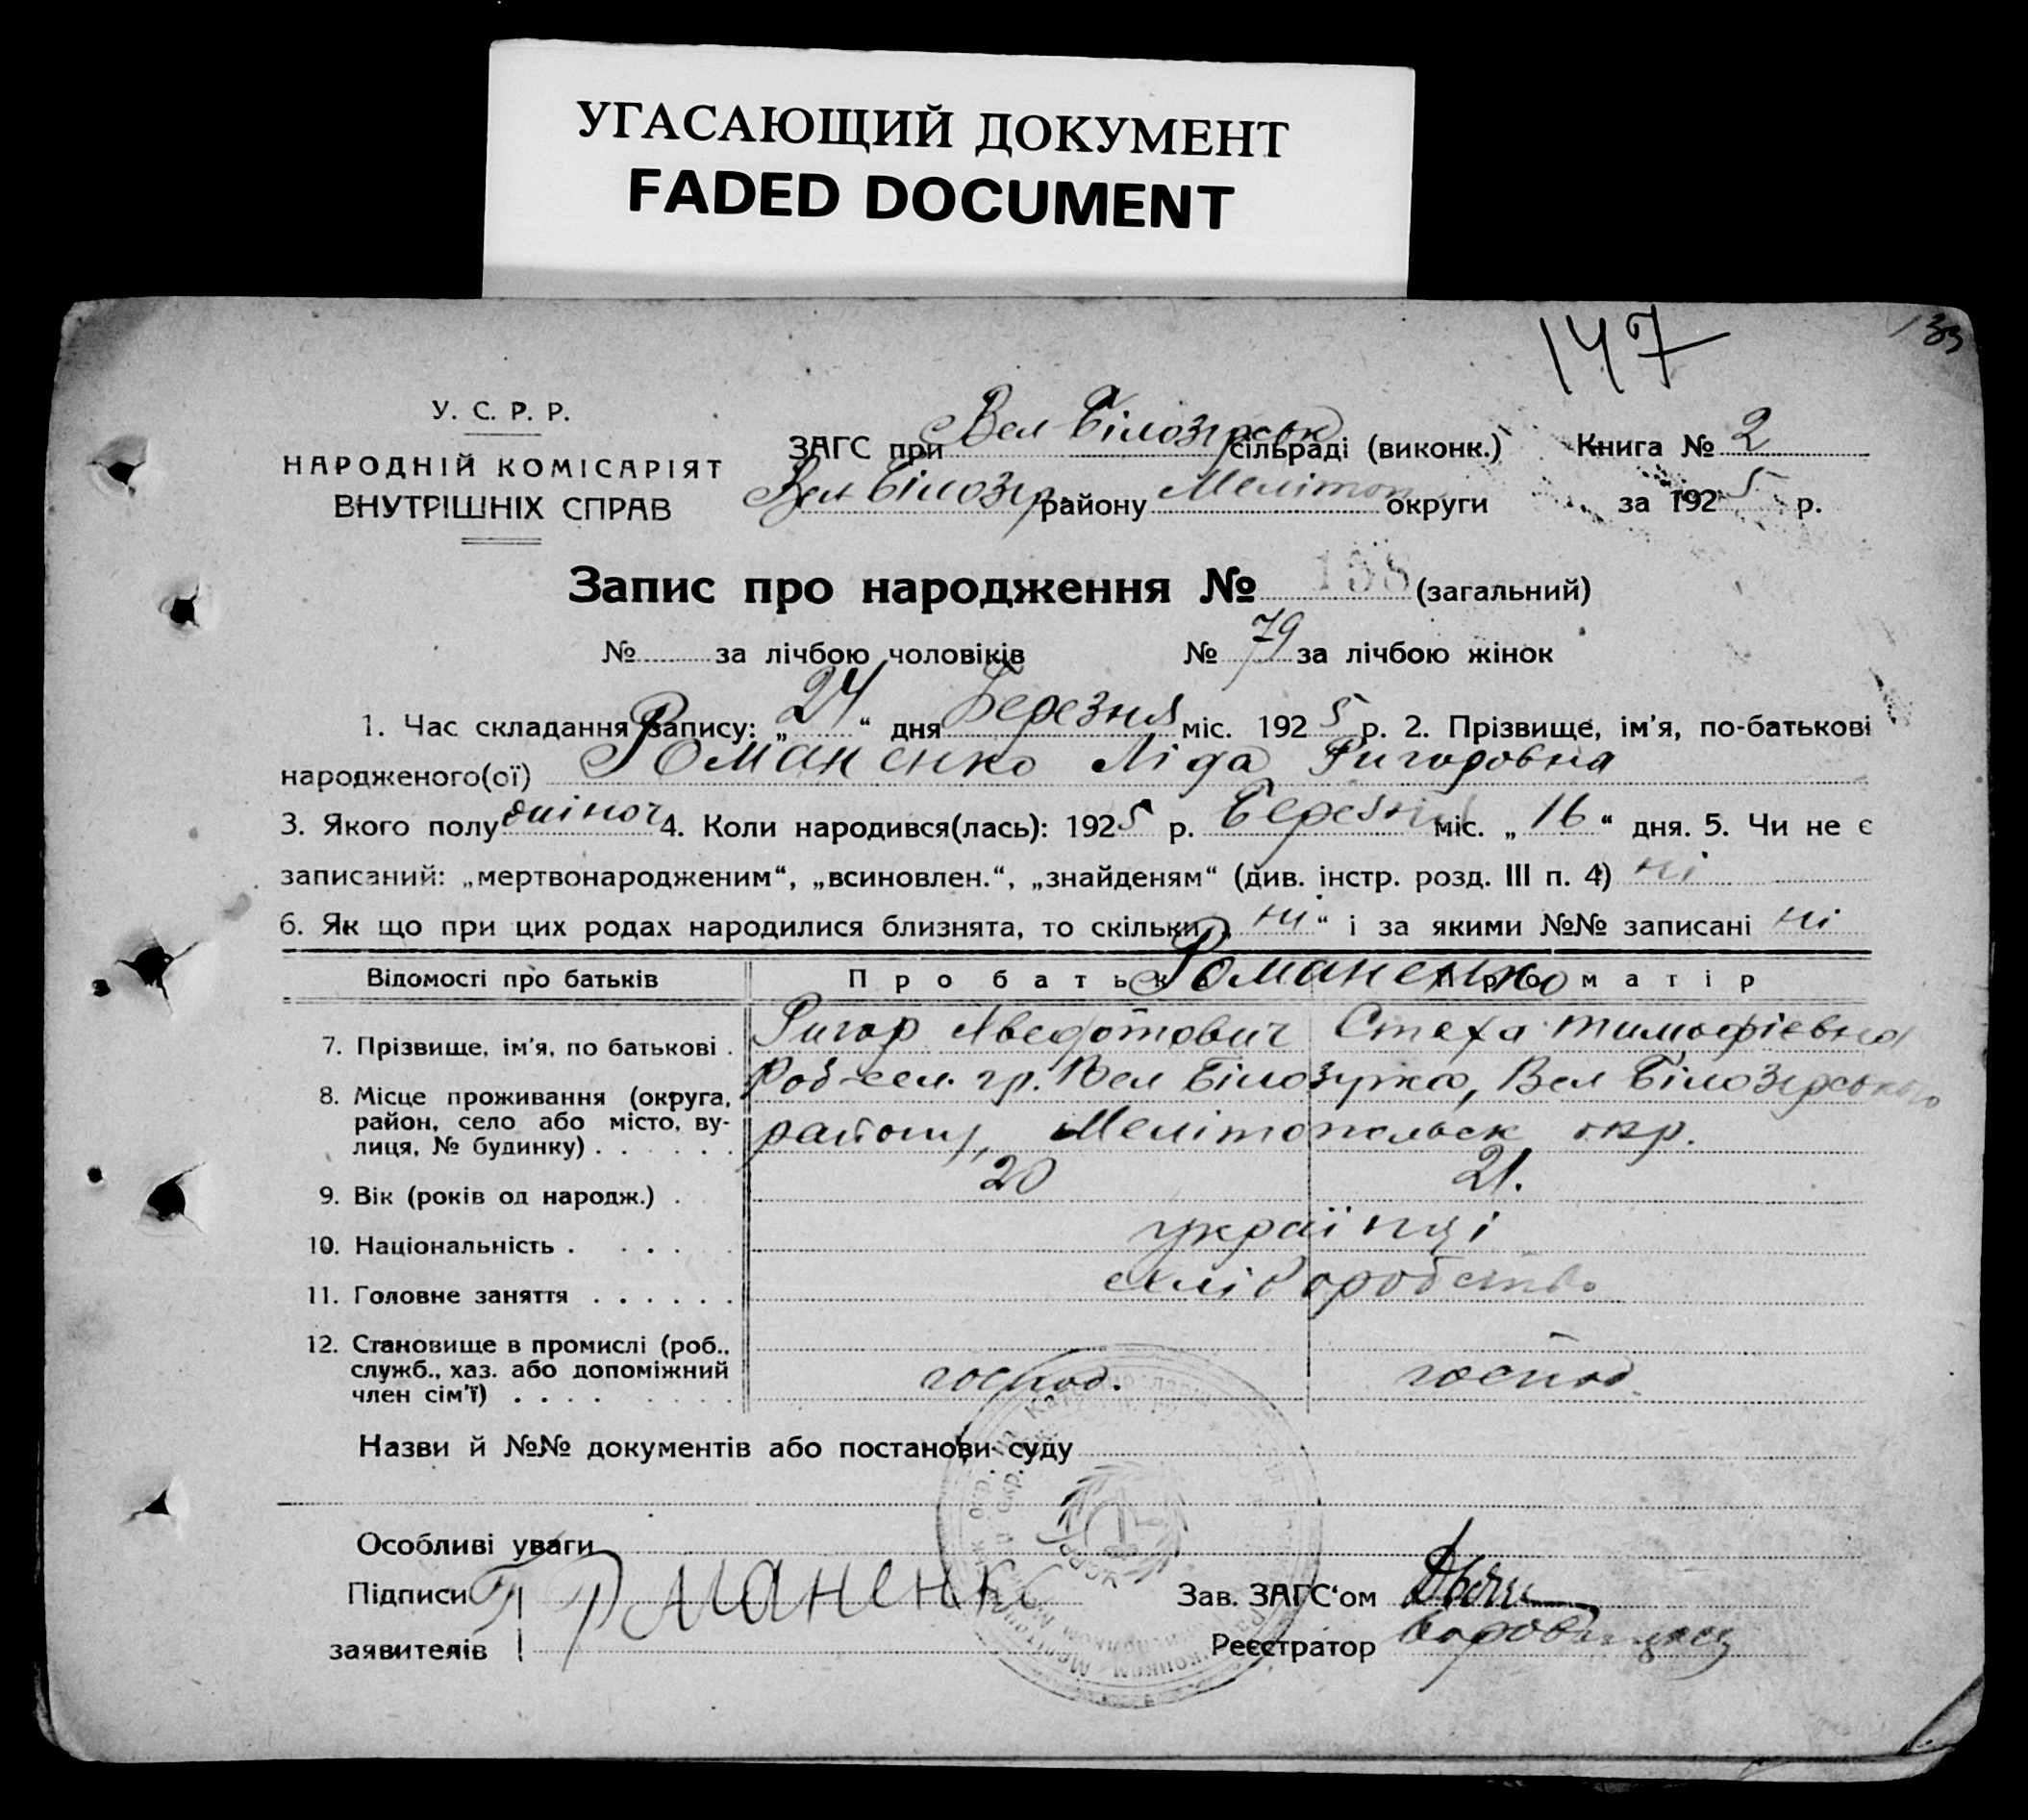 УГАСАЮЩИЙ ДОКУМЕНТ
FADED DOCUMENT
147
133
У. С. Р. Р.
НАРОДНІЙ КОМІСАРІЯТ
ВНУТРІШНІХ СПРАВ
ЗАГС при Вел-Білозірськ сільраді (виконк.) Книга № 2
Вел Білозір. району Меліտоп округи за 1925 р.
Запис про народження № 158 (загальний)
№ за лічбою чоловіків № 79 за лічбою жінок
1. Час складання запису: „24“ дня Березня міс. 1925 р. 2. Прізвище, ім'я, по-батькові
народженого(ої) Романенко Ліда Ригоровна
3. Якого полу жіноч 4. Коли народився(лась): 1925 р. Березня міс. „16“ дня. 5. Чи не є
записаний: „мертвонародженим“, „всиновлен.“, „знайденям“ (див. інстр. розд. III п. 4) ні
6. Як що при цих родах народилися близнята, то скільки „ні“ і за якими №№ записані ні
Відомості про батьків Про батька Романенко Про матір
7. Прізвище, ім'я, по батькові . Ригор Аведотович Стеха Тимофієвна
8. Місце проживання (округа, Вел Білозирка, Вел Білозірського
район, село або місто, ву- району, Мелітопольськ окр.
лиця, № будинку) . . . . . .
9. Вік (років од народж.) . 20 21.
10. Національність . . . . . українці
11. Головне заняття . . . . . . хліборобство
12. Становище в промислі (роб..
служб., хаз. або допоміжний господ. господ.
член сім'ї) . . . .
Назви й №№ документів або постанови суду
Особливі уваги
Підписи Романенко Зав. ЗАГС'ом
заявителів Реєстратор